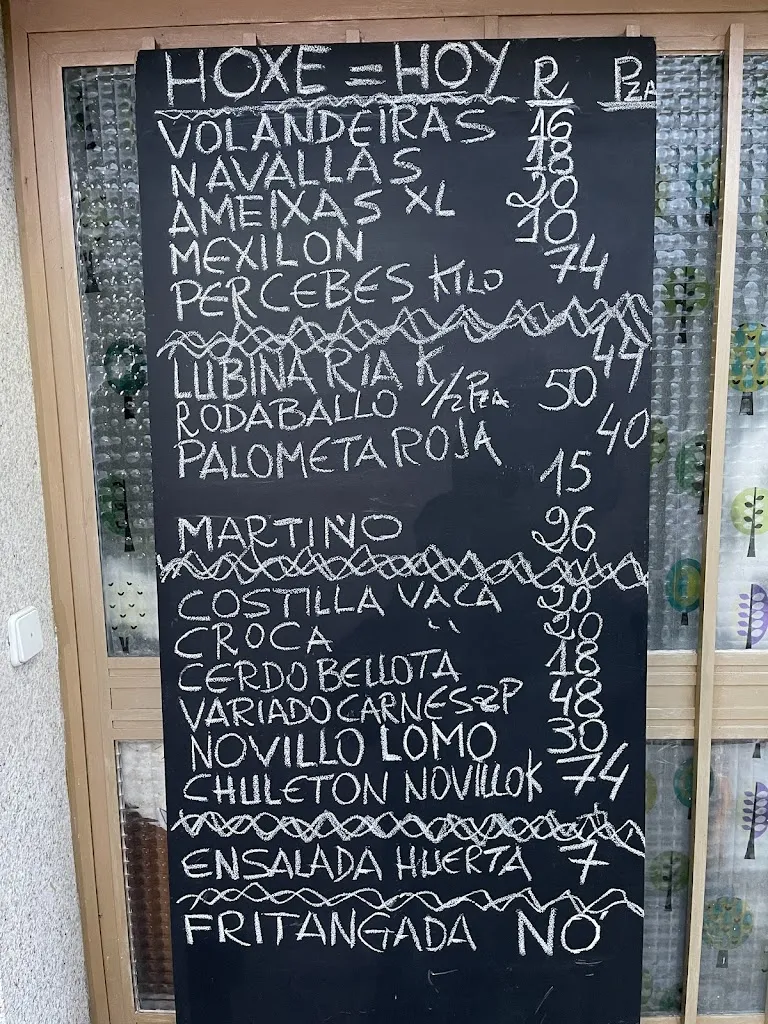 HOXE = HOY R PZA
VOLANDEIRAS 16
NAVALLAS 18
AMEIXAS XL 20
MEXILON 10
PERCEBES KILO 74
LUBINA RIA K 44
RODABALLO 1/2 PZA 50
PALOMETA ROJA 40
15
MARTIÑO 26
COSTILLA VACA 20
CROCA 20
CERDO BELLOTA 18
VARIADO CARNES 2P 48
NOVILLO LOMO 30
CHULETON NOVILLO K 74
ENSALADA HUERTA 7
FRITANGADA NO